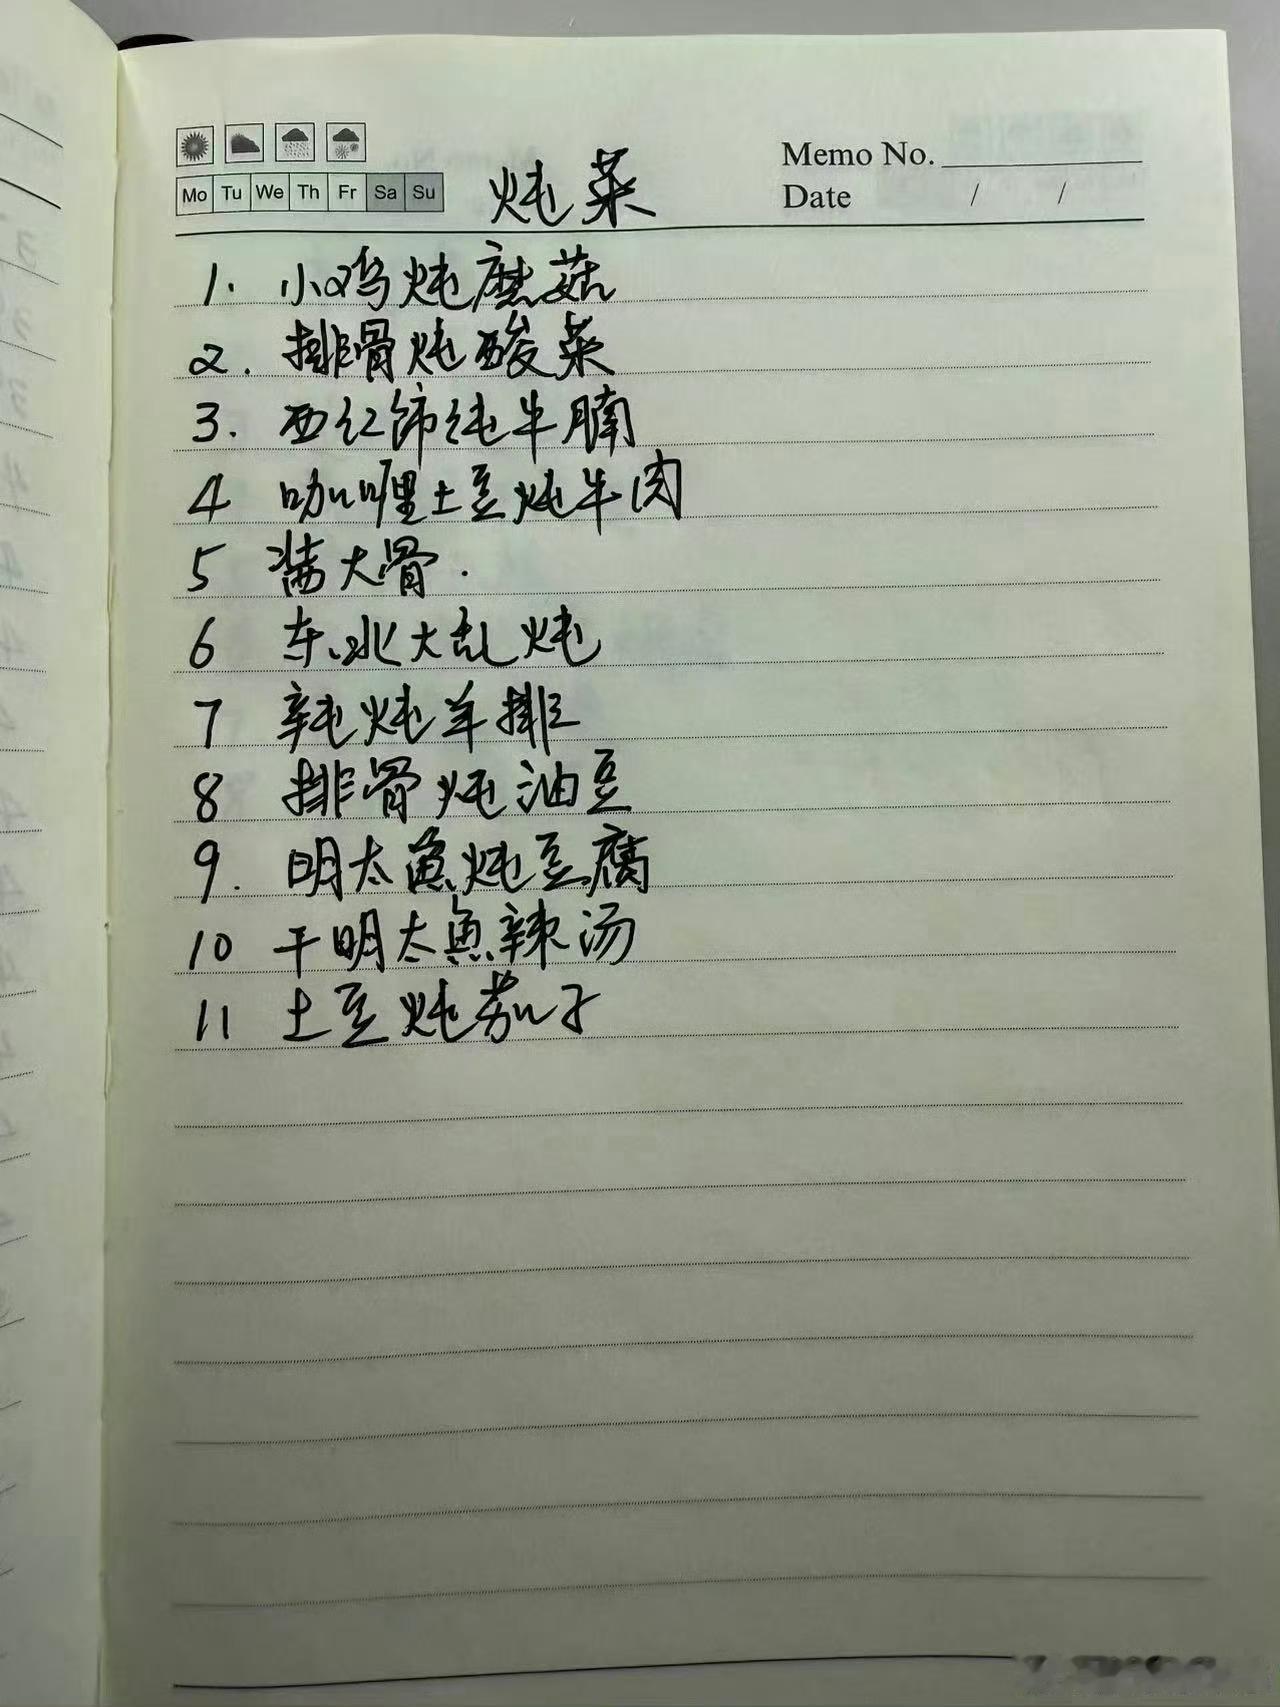 Mo Tu We Th Fr Sa Su
炖菜
Memo No.
Date / /
1. 小鸡炖蘑菇
2. 排骨炖酸菜
3. 西红饰炖牛腩
4 咖喱土豆炖牛肉
5 酱大骨.
6 东北大乱炖
7 辣炖羊排
8 排骨炖油豆
9. 明太鱼炖豆腐
10 干明太鱼辣汤
11 土豆炖茄子